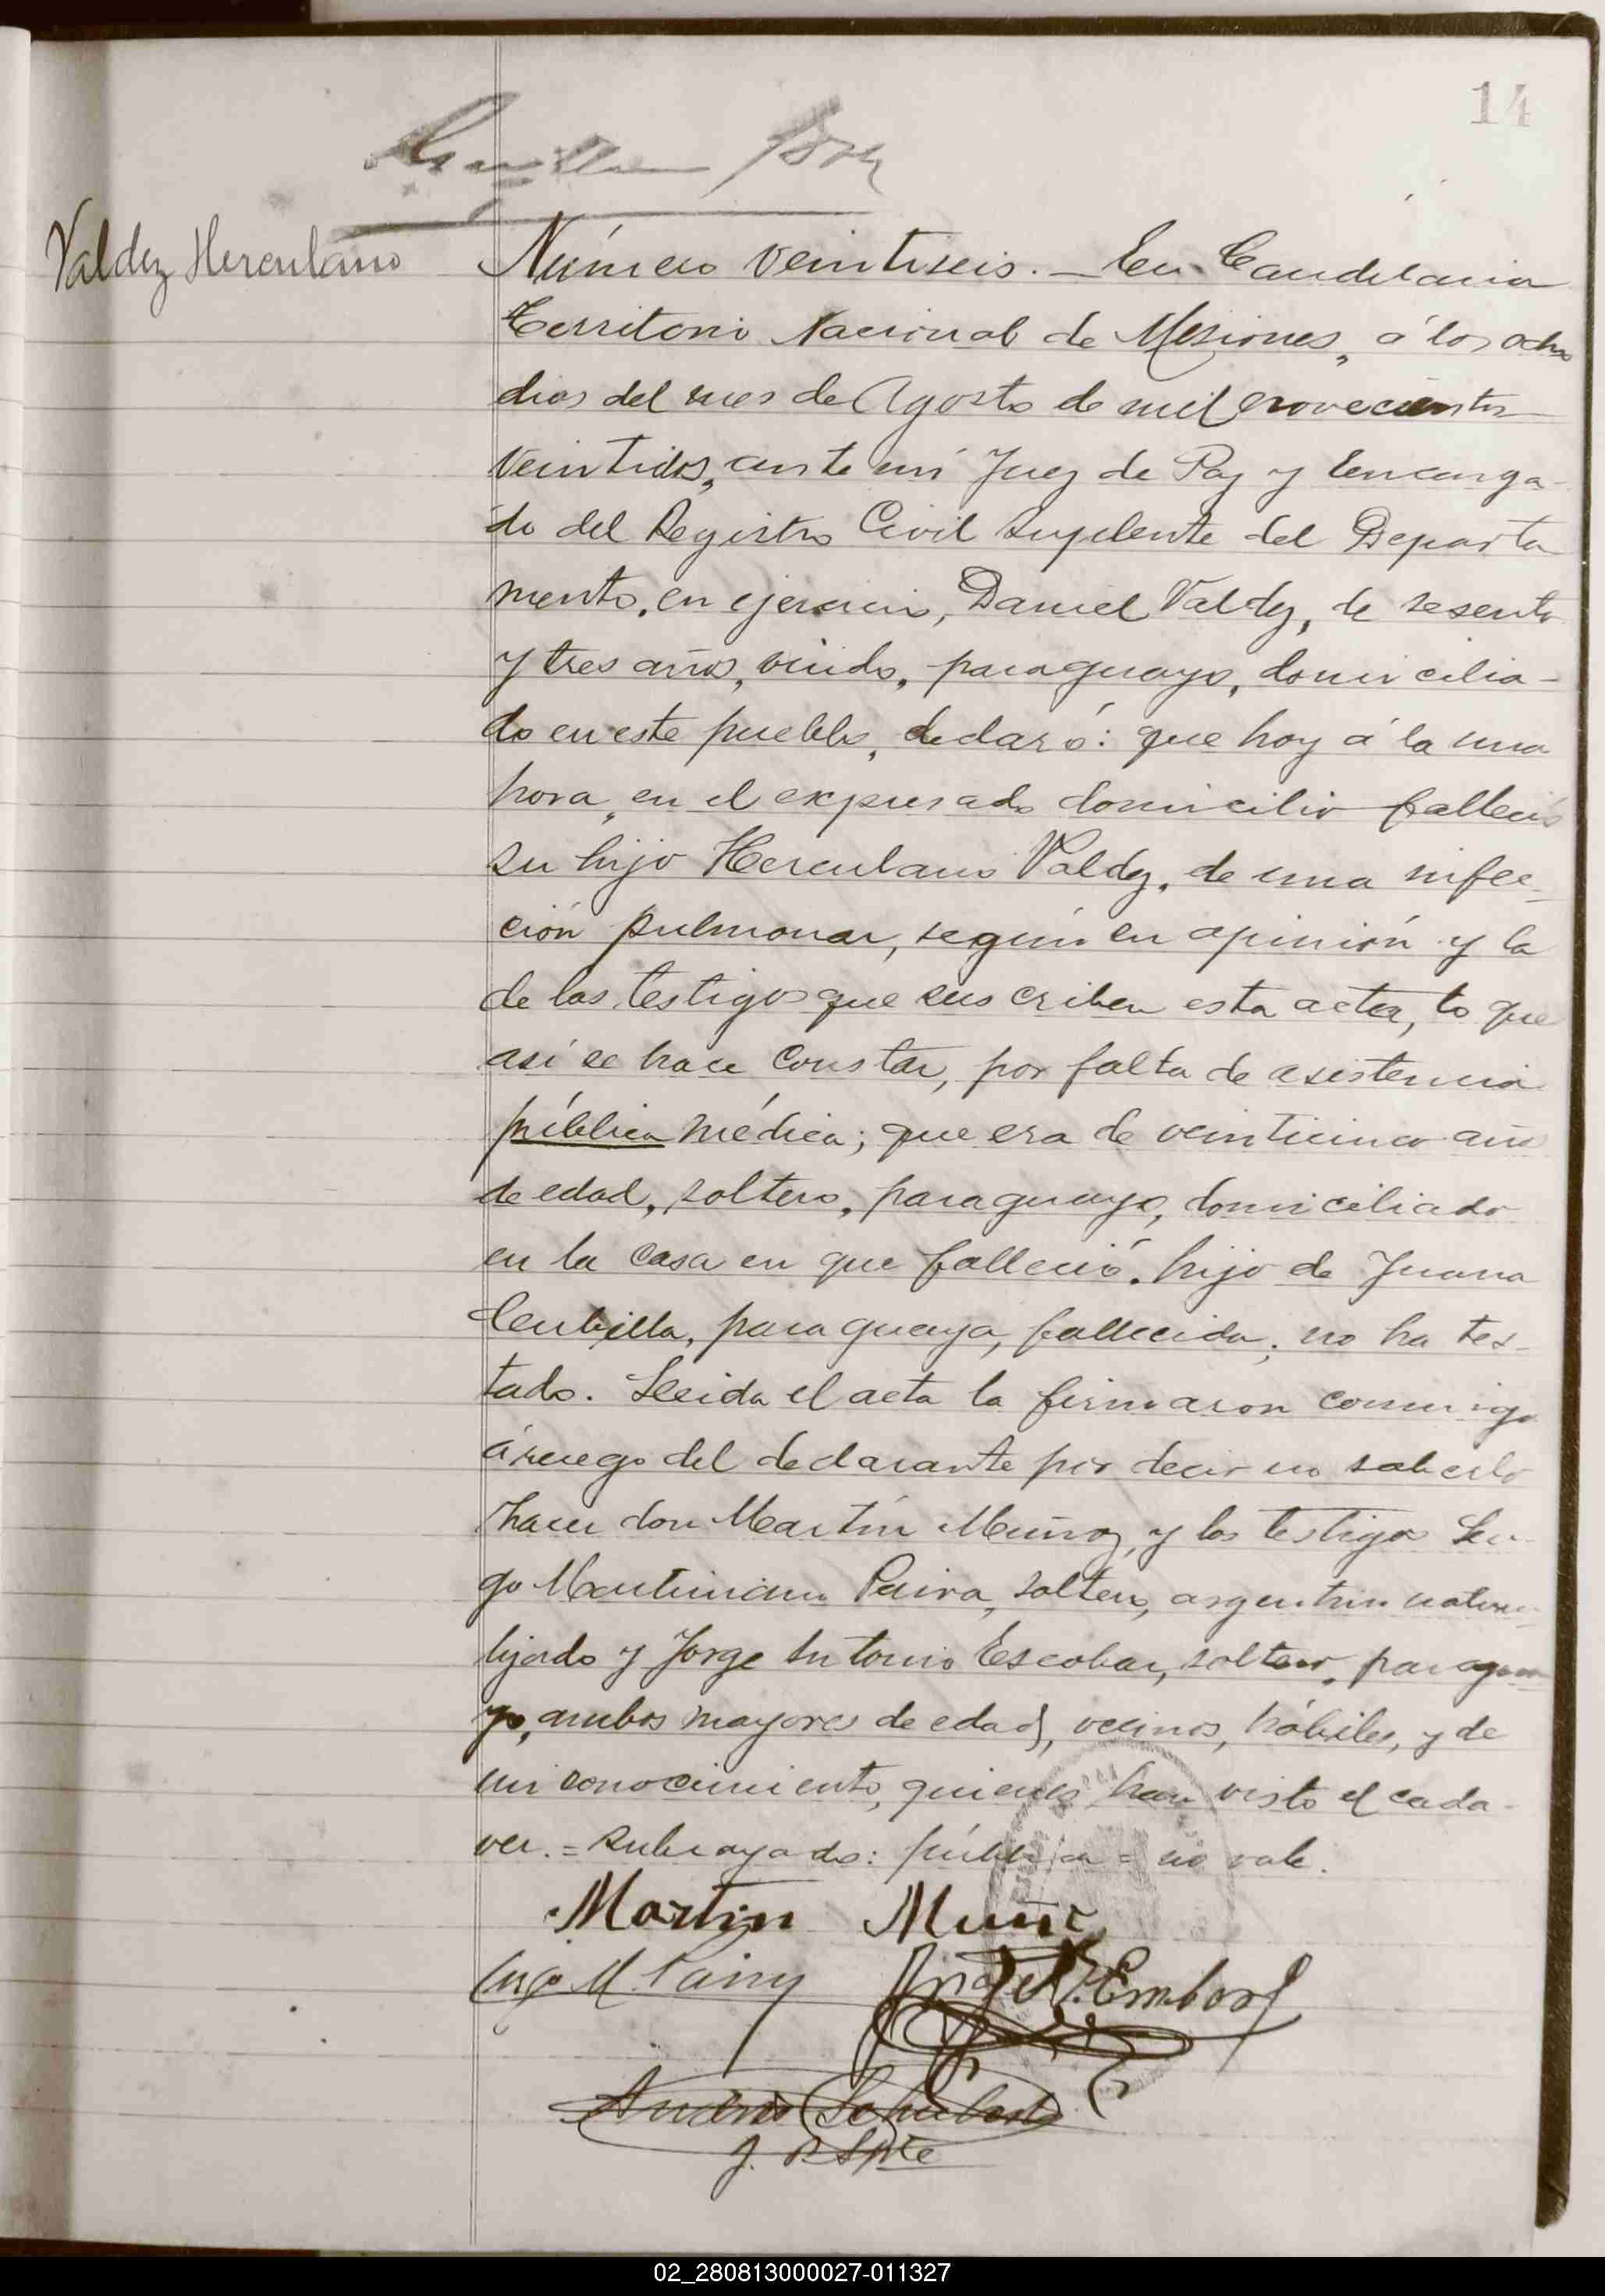 14
Valdez Herculano
Número veintiseis. — En Candelaria
Territorio Nacional de Misiones, á los ocho
dias del mes de Agosto de mil novecientos
veintidos, ante mi Juez de Paz y Encarga-
do del Registro Civil Suplente del Departa
mento, en ejercicio, Daniel Valdez, de sesenta
y tres años, viudo, paraguayo, domicilia-
do en este pueblo, declaró: que hoy á la una
hora, en el expresado domicilio falleció
su hijo Herculano Valdez, de una infec-
ción pulmonar, según su opinión y la
de los testigos que suscriben esta acta, lo que
así se hace constar, por falta de asistencia
pública médica; que era de veinticinco años
de edad, soltero, paraguayo, domiciliado
en la casa en que falleció, hijo de Juana
paraguaya, fallecida; no ha tes-
tado. Leida el acta la firmaron conmigo
á ruego del declarante por decir no saberlo
hacer don Martín Muñoz, y los testigos
Paiva, soltero, argentino natura-
lizado y Jorge Antonio Escobar, soltero, paragua
yo, ambos mayores de edad, vecinos, hábiles, y de
mi conocimiento, quienes han visto el cada-
ver. = Subrayado: pública = no vale.
Martin Muñoz
Angel
J. P. Splte
02_280813000027-011327